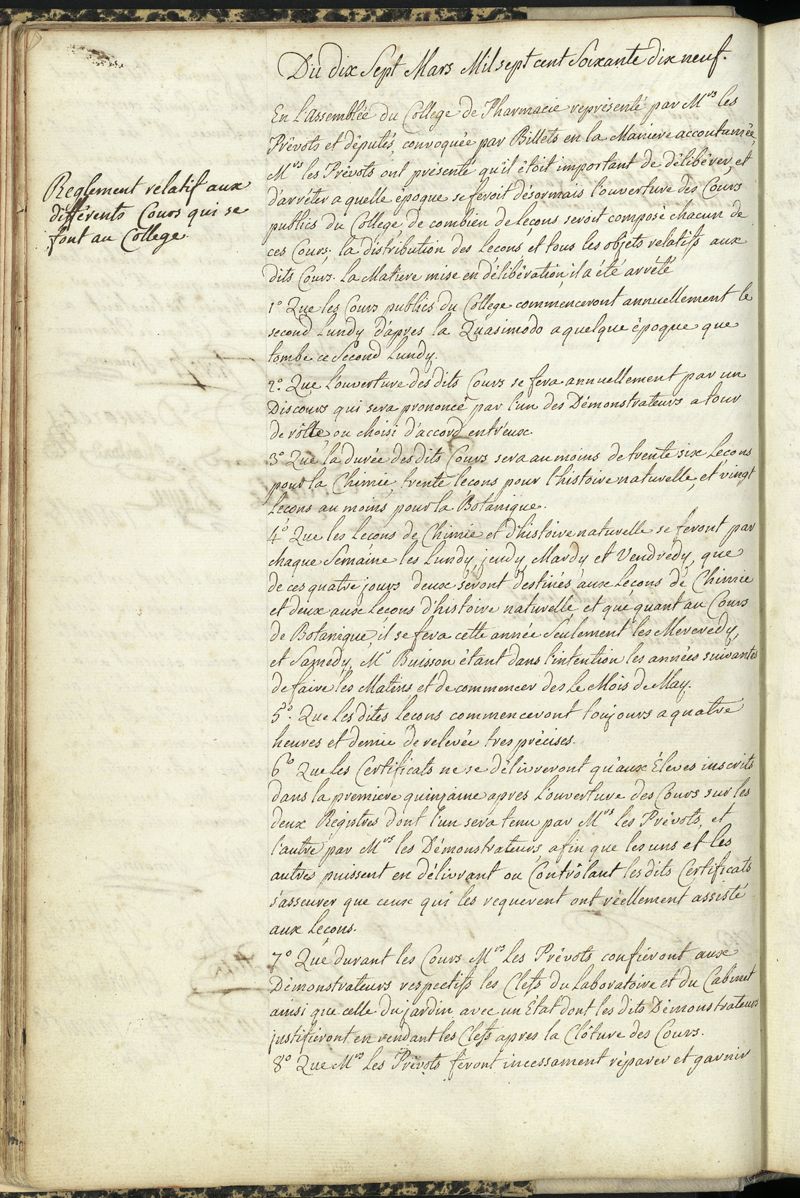 Du dix Sept Mars Mil sept cent Soixante dix neuf.
En l'Assemblée du College de Pharmacie représenté par Mrs les
Prévots et députés, convoquée par Billets en la Maniere accoutumée,
Mrs les Prévots ont présenté qu'il étoit important de délibérer, et
d'arrêter a quelle époque se feroit désormais l'ouverture des Cours
publics du College, de combien de Lecons seroit composé chacun de
ces Cours, la distribution des Lecons et tous les objets relatifs aux
dits Cours. La Matiere mise en délibération, il a été arrêté
Reglement relatif aux
différents Cours qui se
font au College
1º Que les Cours publics du College commenceront annuellement le
second Lundy d'apres la Quasimodo a quelque époque que
tombe ce Second Lundy.
2º. Que l'ouverture des dits Cours se fera annuellement par un
Discours qui sera prononcé par l'un des Démonstrateurs a tour
de rôlle ou choisi d'accord entr'eux.
3º Que la durée des dits Cours sera au moins de trente six Lecons
pour la Chimie, trente Lecons pour l'histoire naturelle, et vingt
Lecons au moins pour la Botanique.
4º Que les Lecons de Chimie et d'histoire naturelle se feront par
chaque Semaine les Lundy, jeudy, Mardy et Vendredy, que
de ces quatre jours deux seront destinés aux Lecons de Chimie
et deux aux Lecons d'histoire naturelle et que quant au Cours
de Botanique, il se fera cette année seulement les Mercredy,
et Samedy, Mr Buisson étant dans l'intention les années suivantes
de faire les Matins et de commencer des le Mois de May.
5º. Que Les dites Lecons commenceront toujours a quatre
heures et demie de relevée tres précises.
6º Que les Certificats ne se délivreront qu'aux Éleves inscrits
dans la premiere quinzaine apres l'ouverture des Cours sur les
deux Registres dont l'un sera tenu par Mrs Les Prévots, et
l'autre par Mrs les Démonstrateurs, afin que les uns et les
autres puissent en délivrant ou Contrôlant les dits Certificats
s'asseurer que ceux qui les requerent ont réellement assisté
aux Lecons.
7º Que durant les Cours Mrs Les Prévots confieront aux
Démonstrateurs respectifs les Clefs du Laboratoire et du Cabinet
ainsi que celle du jardin avec un Etat dont les dits Démonstrateurs
justifieront en rendant les Clefs apres la Clôture des Cours.
8º Que Mrs Les Prévots feront incessament réparer et garnir